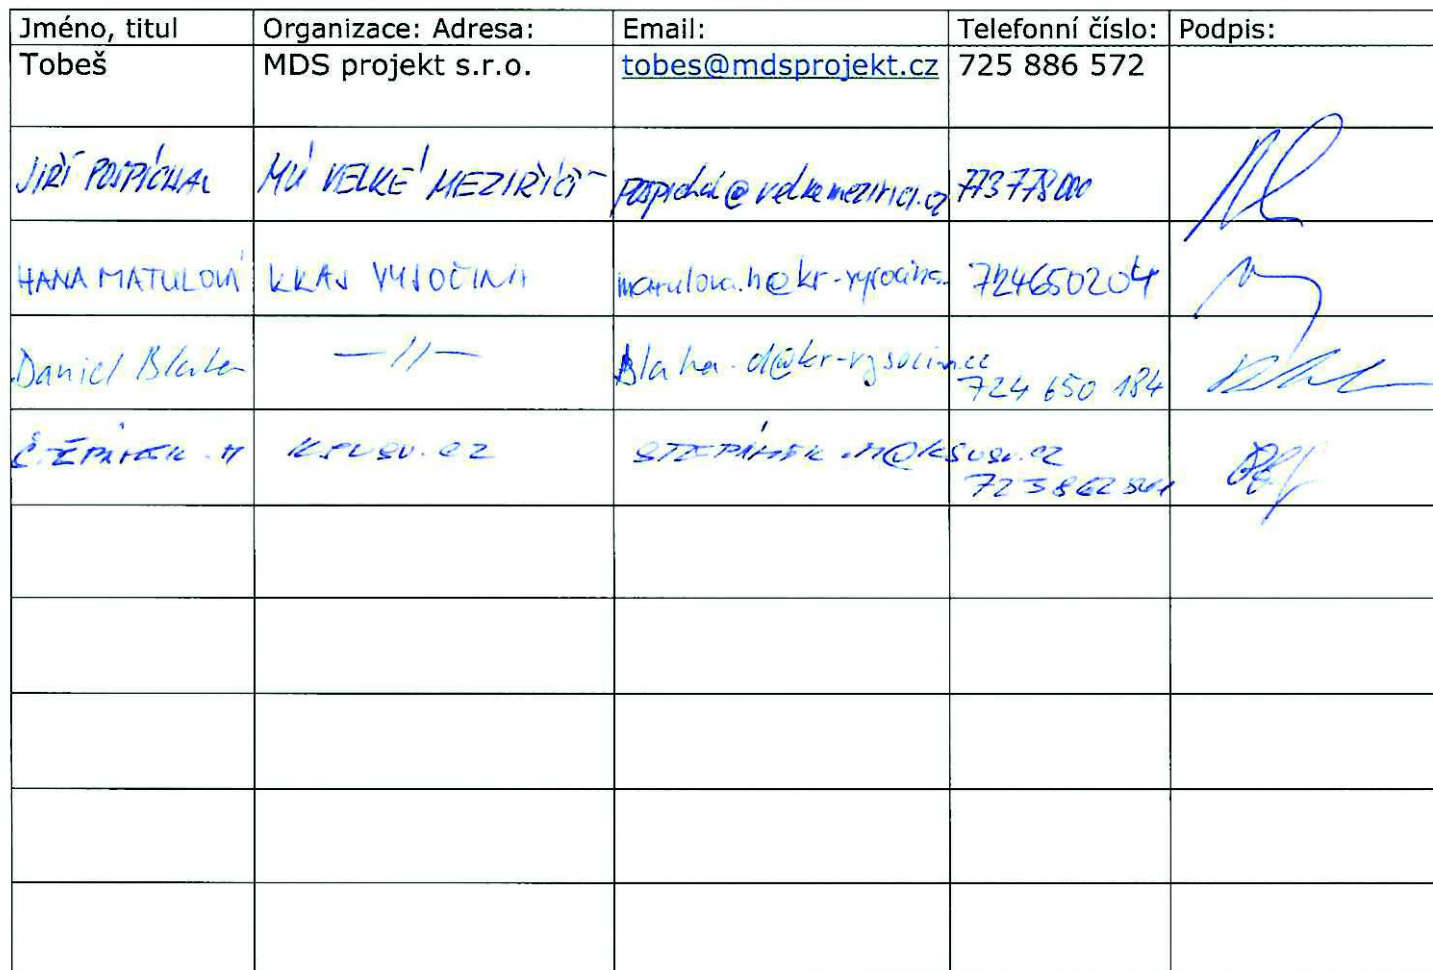 Jméno, titul Organizace: Adresa: Email: Telefonní číslo: Podpis:
Tobeš MDS projekt s.r.o. tobes@mdsprojekt.cz 725 886 572
JIŘÍ POSPÍCHAL MÚ VELKÉ MEZIŘÍČÍ pospichal@velkemezirici.cz 773 778 000
HANA MATULOVÁ KRAJ VYSOČINA matulova.h@kr-vysocina 724650204
Daniel Blaha —//— Blaha.d@kr-vysocina.cz
724 650 184
ŠTĚPÁNEK .M KSUSV.CZ STEPÁNEK.M@KSUSV.CZ